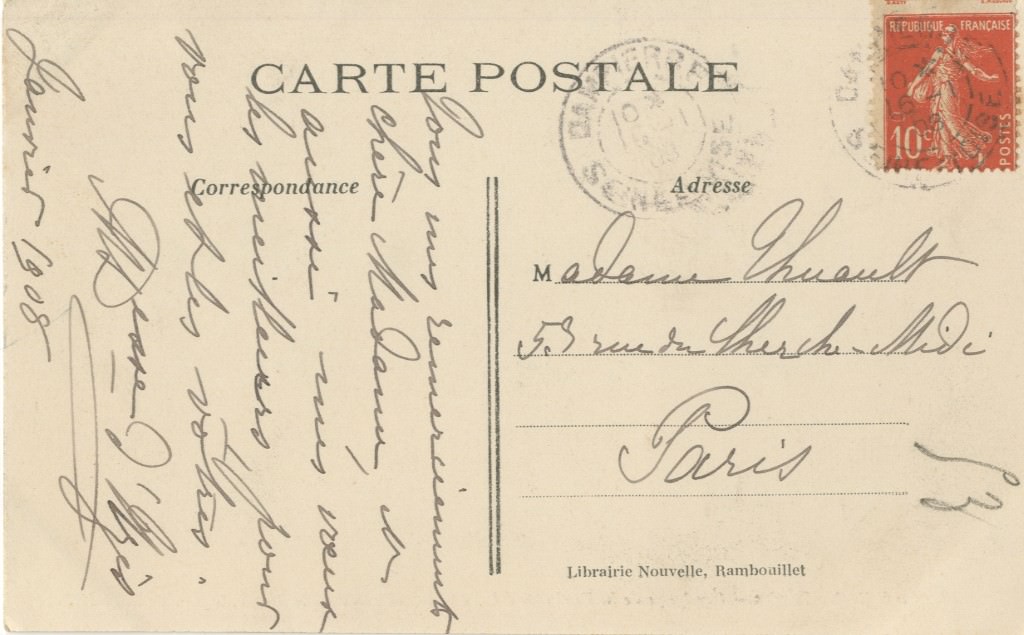 CARTE POSTALE
Correspondance
Adresse
RÉPUBLIQUE FRANÇAISE
10c
POSTES
DAMPIERRE
SEINE-ET-OISE
Madame Thuault
53 rue du Cherche-Midi
Paris
53
Librairie Nouvelle, Rambouillet
Tous mes remerciements
chère Madame, et
aussi mes vœux
les meilleurs pour
vous et les vôtres.
Janvier 1908